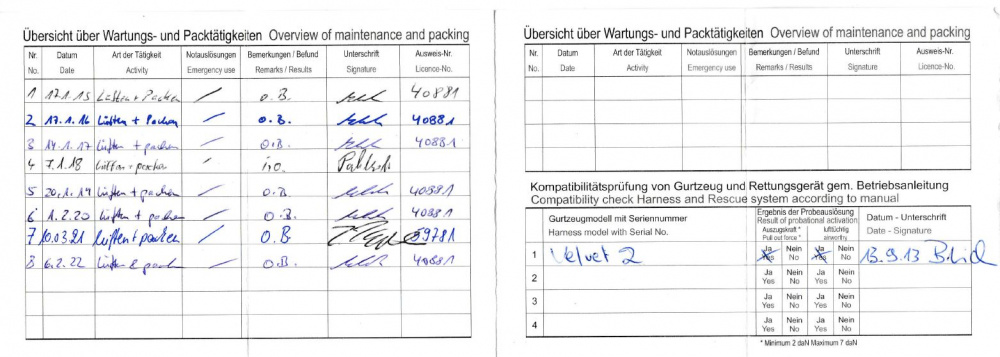 Übersicht über Wartungs- und Packtätigkeiten Overview of maintenance and packing
Nr. Datum Art der Tätigkeit Notauslösungen Bemerkungen / Befund Unterschrift Ausweis-Nr.
No. Date Activity Emergency use Remarks / Results Signature Licence-No.
1 17.1.15 Lüften + Packen / o.B. 40881
2 17.1.16 Lüften + Packen / o.B. 40881
3 14.1.17 Lüften + packen / o.B. 40881
4 7.1.18 Lüften + packen / i.o.
5 20.1.19 Lüften + packen / o.B. 40881
6 1.2.20 Lüften + packen / o.B. 40881
7 10.03.21 Lüften + packen / O.B 39781
8 6.2.22 Lüften & packen / o.B. 40881
Übersicht über Wartungs- und Packtätigkeiten Overview of maintenance and packing
Nr. Datum Art der Tätigkeit Notauslösungen Bemerkungen / Befund Unterschrift Ausweis-Nr.
No. Date Activity Emergency use Remarks / Results Signature Licence-No.
Kompatibilitätsprüfung von Gurtzeug und Rettungsgerät gem. Betriebsanleitung
Compatibility check Harness and Rescue system according to manual
Gurtzeugmodell mit Seriennummer
Harness model with Serial No.
Ergebnis der Probeauslösung
Result of probational activation
Auszugskraft * luftüchtig
Pull out force * airworthy
Datum - Unterschrift
Date - Signature
1 Velvet 2 Ja Nein Ja Nein 13.9.13
Yes No Yes No
2 Ja Nein Ja Nein
Yes No Yes No
3 Ja Nein Ja Nein
Yes No Yes No
4 Ja Nein Ja Nein
Yes No Yes No
* Minimum 2 daN Maximum 7 daN